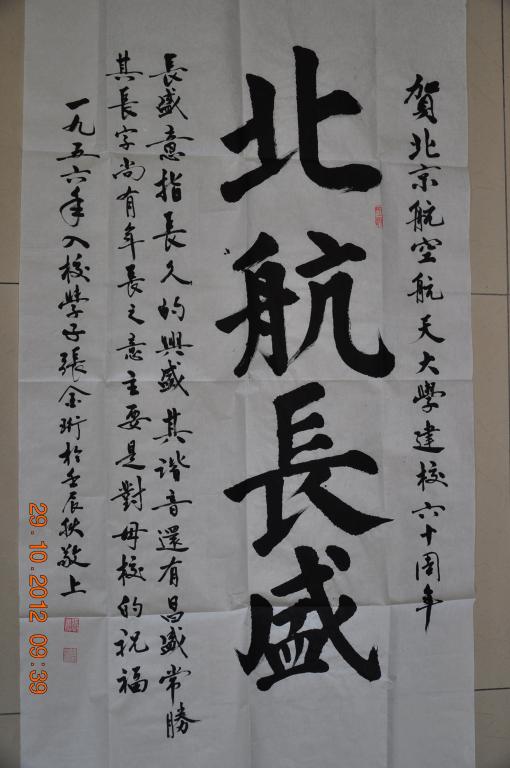 賀北京航空航天大學建校六十周年
北航長盛
長盛意指長久的興盛其諧音還有昌盛常勝
其長字尚有年長之意主要是對母校的祝福
一九五六年入校學子張金衔於壬辰秋敬上
29.10.2012 09:39